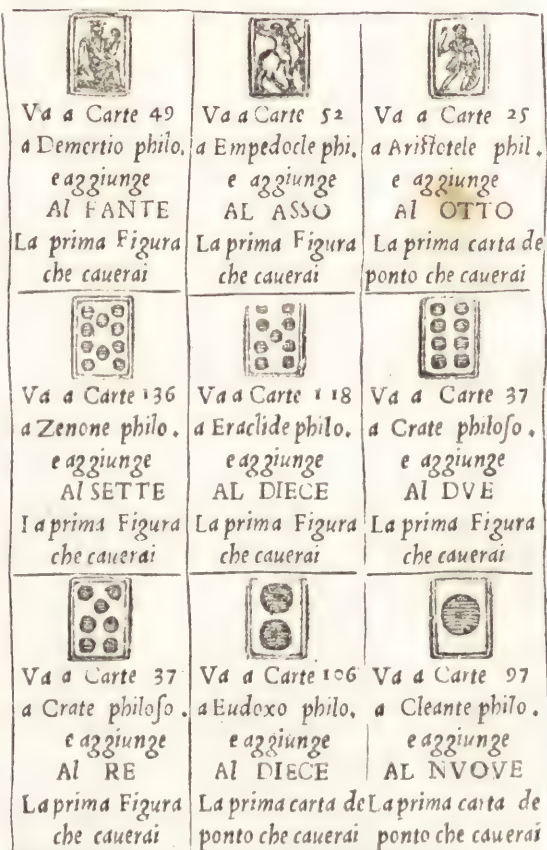 Va a Carte 49
a Demertio philo.
e aggiunge
Al FANTE
La prima Figura
che cauerai
Va a Carte 52
a Empedocle phi.
e aggiunge
AL ASSO
La prima Figura
che cauerai
Va a Carte 25
a Aristotele phil.
e aggiunge
Al OTTO
La prima carta de
ponto che cauerai
Va a Carte 136
a Zenone philo.
e aggiunge
Al SETTE
La prima Figura
che cauerai
Va a Carte 118
a Eraclide philo.
e aggiunge
AL DIECE
La prima Figura
che cauerai
Va a Carte 37
a Crate philoſo.
e aggiunge
Al DVE
La prima Figura
che cauerai
Va a Carte 37
a Crate philoſo.
e aggiunge
Al RE
La prima Figura
che cauerai
Va a Carte 106
a Eudoxo philo.
e aggiunge
Al DIECE
La prima carta de
ponto che cauerai
Va a Carte 97
a Cleante philo.
e aggiunge
AL NVOVE
La prima carta de
ponto che cauerai